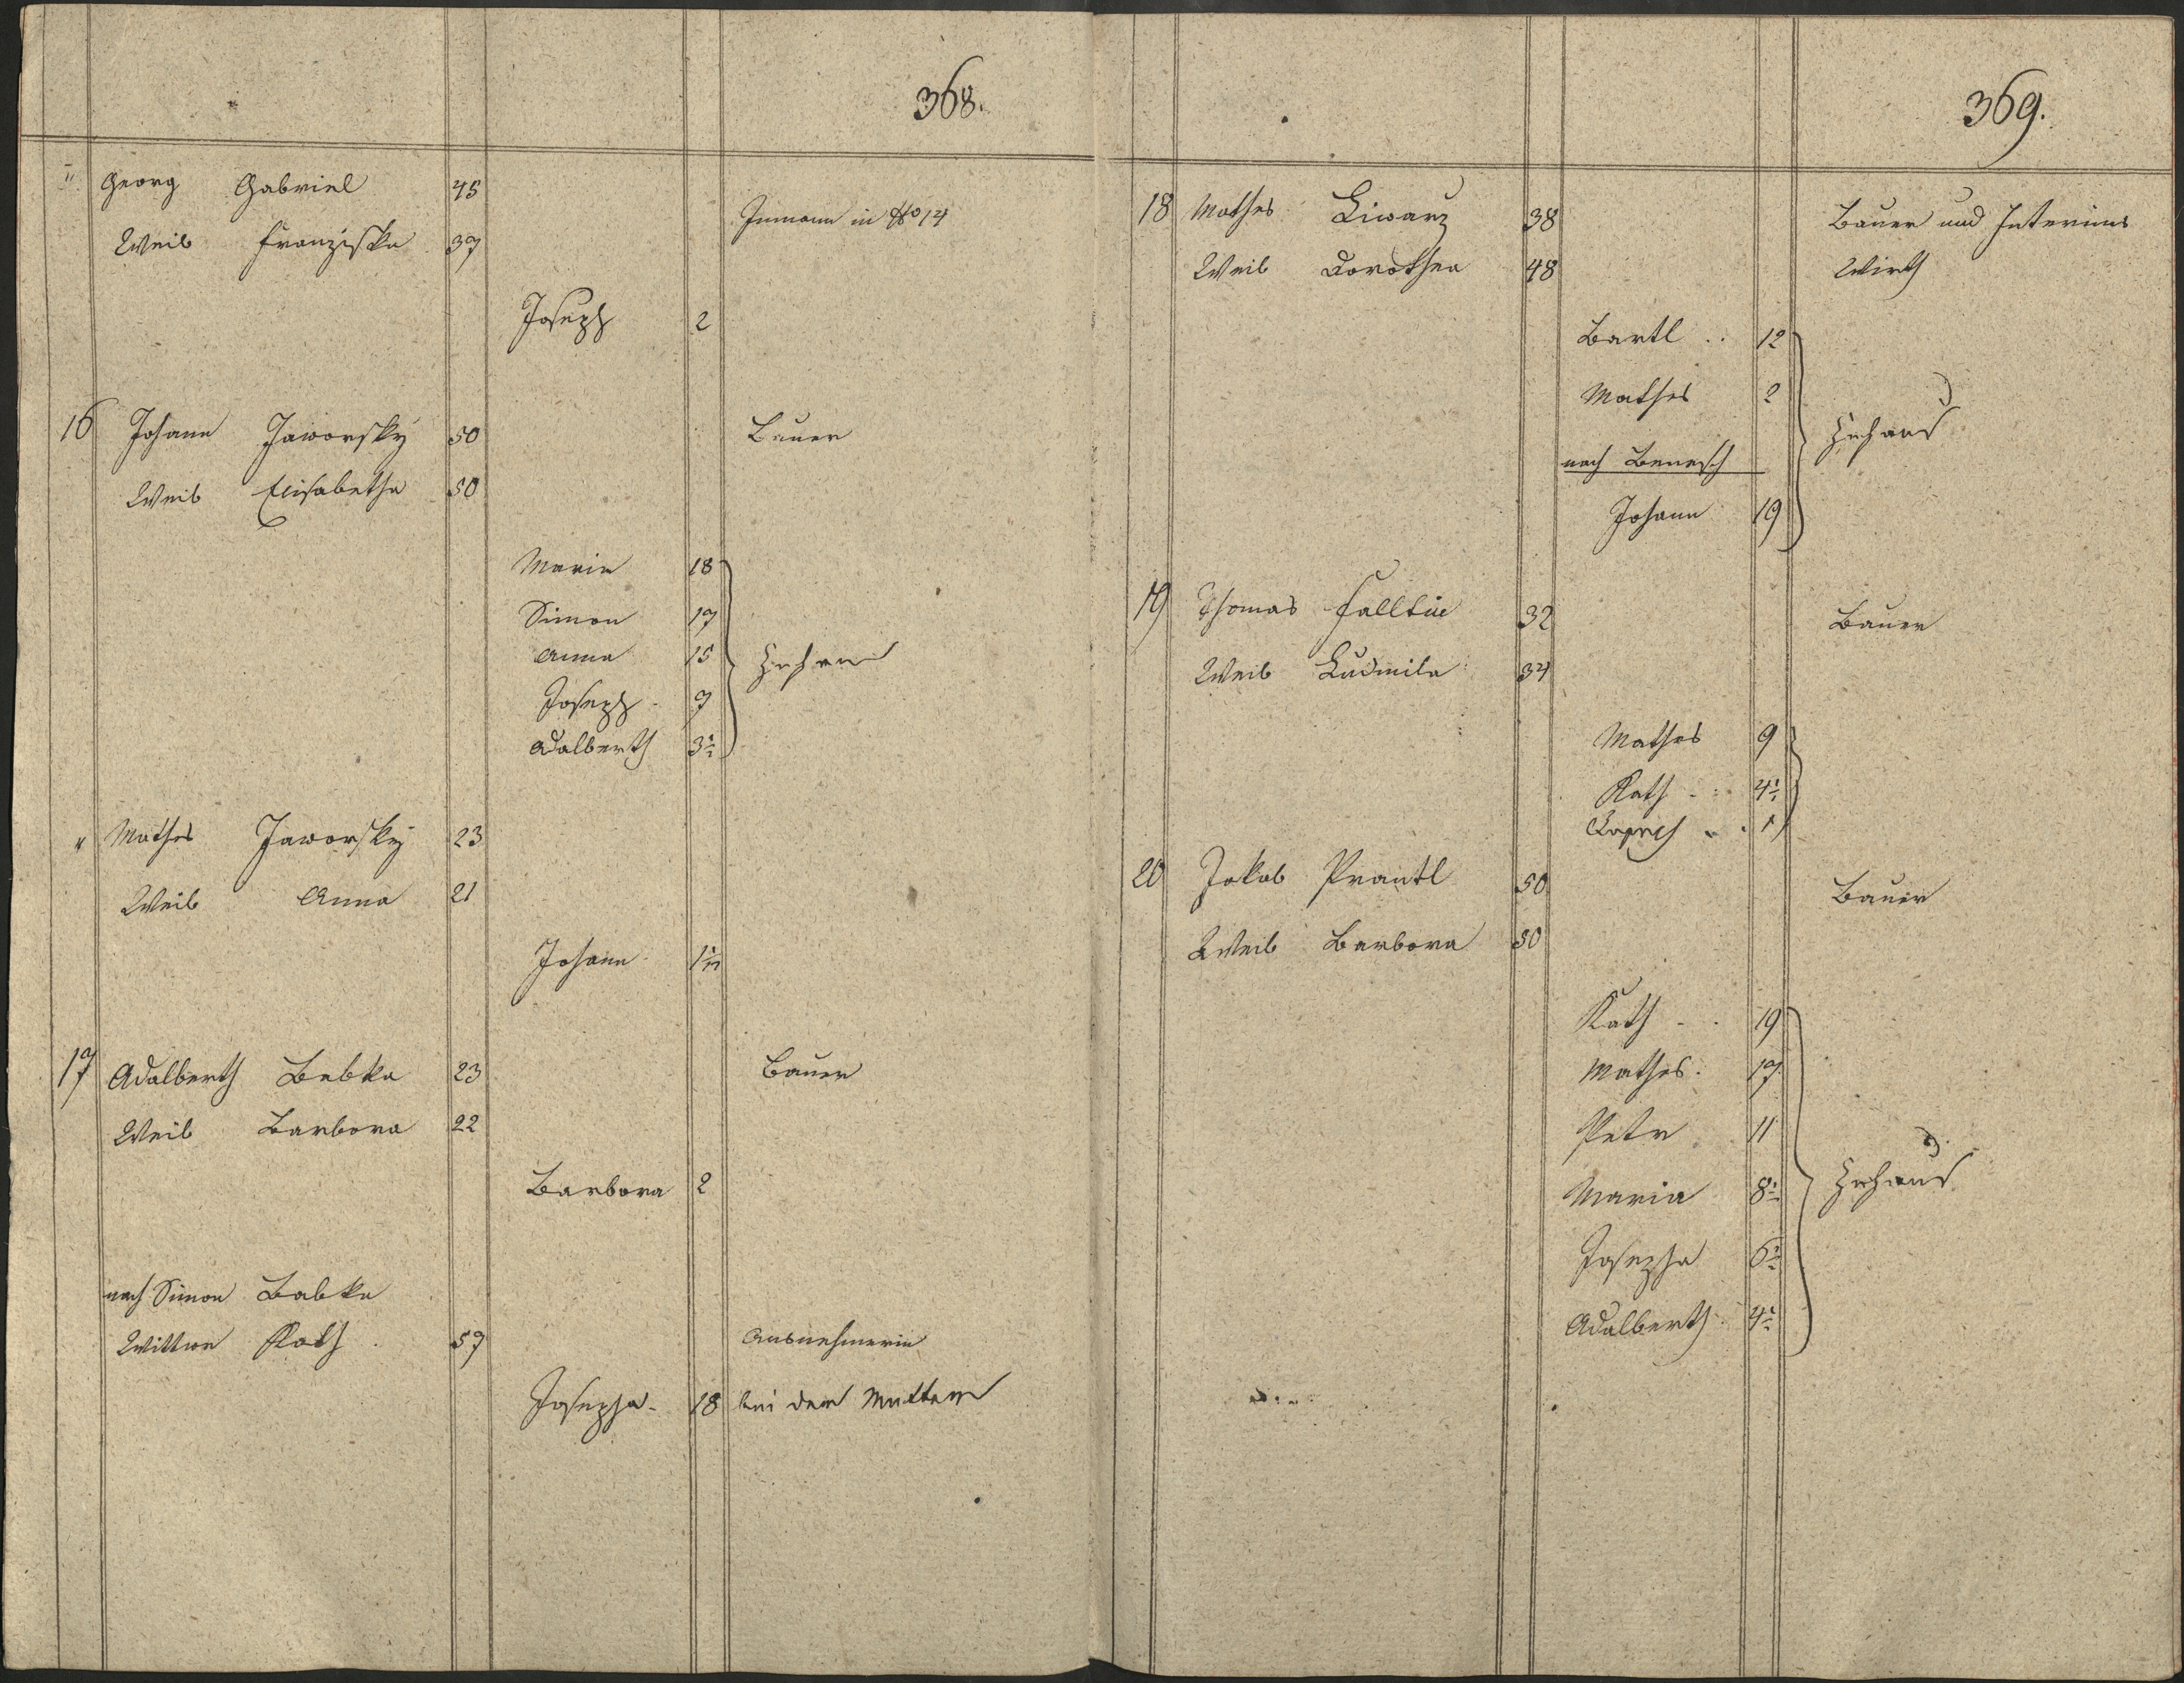 368.
" Georg Gabriel 45
Inmann in No 14
Weib Franziska 37
Joseph 2
16 Johann Jaworsky 50 Bauer
Weib Elisabetha 50
Maria 18
Simon 17
Anna 15 Zuhaus
Joseph 7
Adalberth 3
" Mathes Jaworsky 23
Weib Anna 21
Johann 1
17 Adalberth Babka 23 Bauer
Weib Barbora 22
Barbora 2
nach Simon Babka
Wittwe Kath. 57 Ausnehmerin
Josepha 18 bei der Mutter
369.
18 Mathes Liwarz 38 Bauer und Interims
Weib Dorothea 48 Wirth
Bartl 12
Mathes 2
Zuhaus
nach Benesch
Johann 19
19 Thomas Falltin 32 Bauer
Weib Ludmila 34
Mathes 9
Kath 4
1
20 Jakob Prantl 50 Bauer
Weib Barbora 50
Kath 19
Mathes 17
Petr 11
Maria 8 Zuhaus
Josepha 6
Adalberth 4